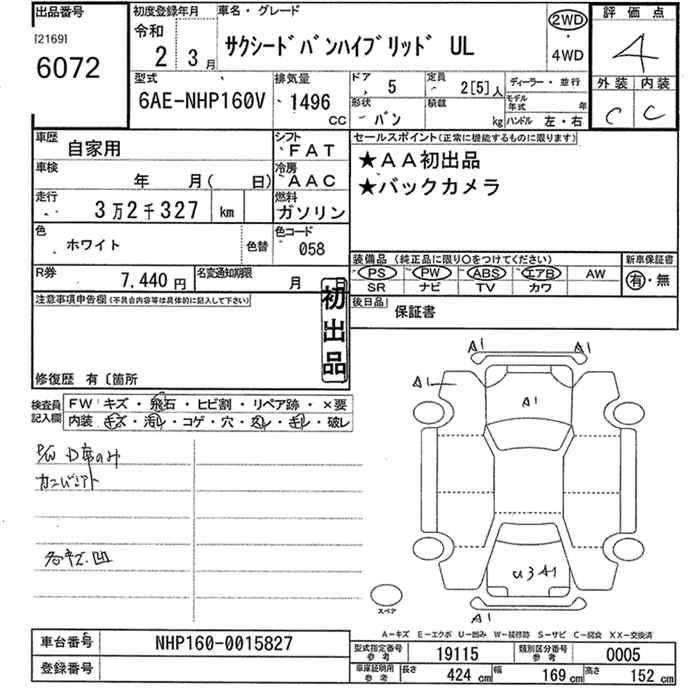 出品番号
[2169]
6072
初度登録年月
令和
2 3月
車名・グレード
サクシードバンハイブリッド UL
2WD
4WD
評価点
4
外装 内装
C C
型式
6AE-NHP160V
排気量
1496 CC
ドア
5
定員
2[5]人
形状
バン
積載
kg
ディーラー・並行
モデル年式 年
ハンドル 左・右
車歴
自家用
シフト
FAT
車検
年 月( 日)
冷房
AAC
走行
3万2千327 km
燃料
ガソリン
色
ホワイト
色替
色コード
058
R券
7,440円
名変通知期限
月 日
セールスポイント(正常に機能するものに限ります)
★AA初出品
★バックカメラ
装備品(純正品に限り○をつけてください)
新車保証書
PS PW ABS エアB AW
SR ナビ TV カワ
有・無
後日品
保証書
注意事項申告欄(不具合内容等は具体的に記入して下さい)
初出品
修復歴 有〔箇所
検査員記入欄
FW キズ・飛石・ヒビ割・リペア跡・×要
内装 キズ・汚レ・コゲ・穴・スレ・キレ・破レ
P/W D席のみ
各キズ.凹
A1 A1
A1
A1
U3A1
A1
スペア
A-キズ E-エクボ U-凹み W-補修跡 S-サビ C-腐食 XX-交換済
車台番号
NHP160-0015827
登録番号
型式指定番号
参考
19115
類別区分番号
参考
0005
車庫証明用
参考
長さ 424 cm 幅 169 cm 高さ 152 cm